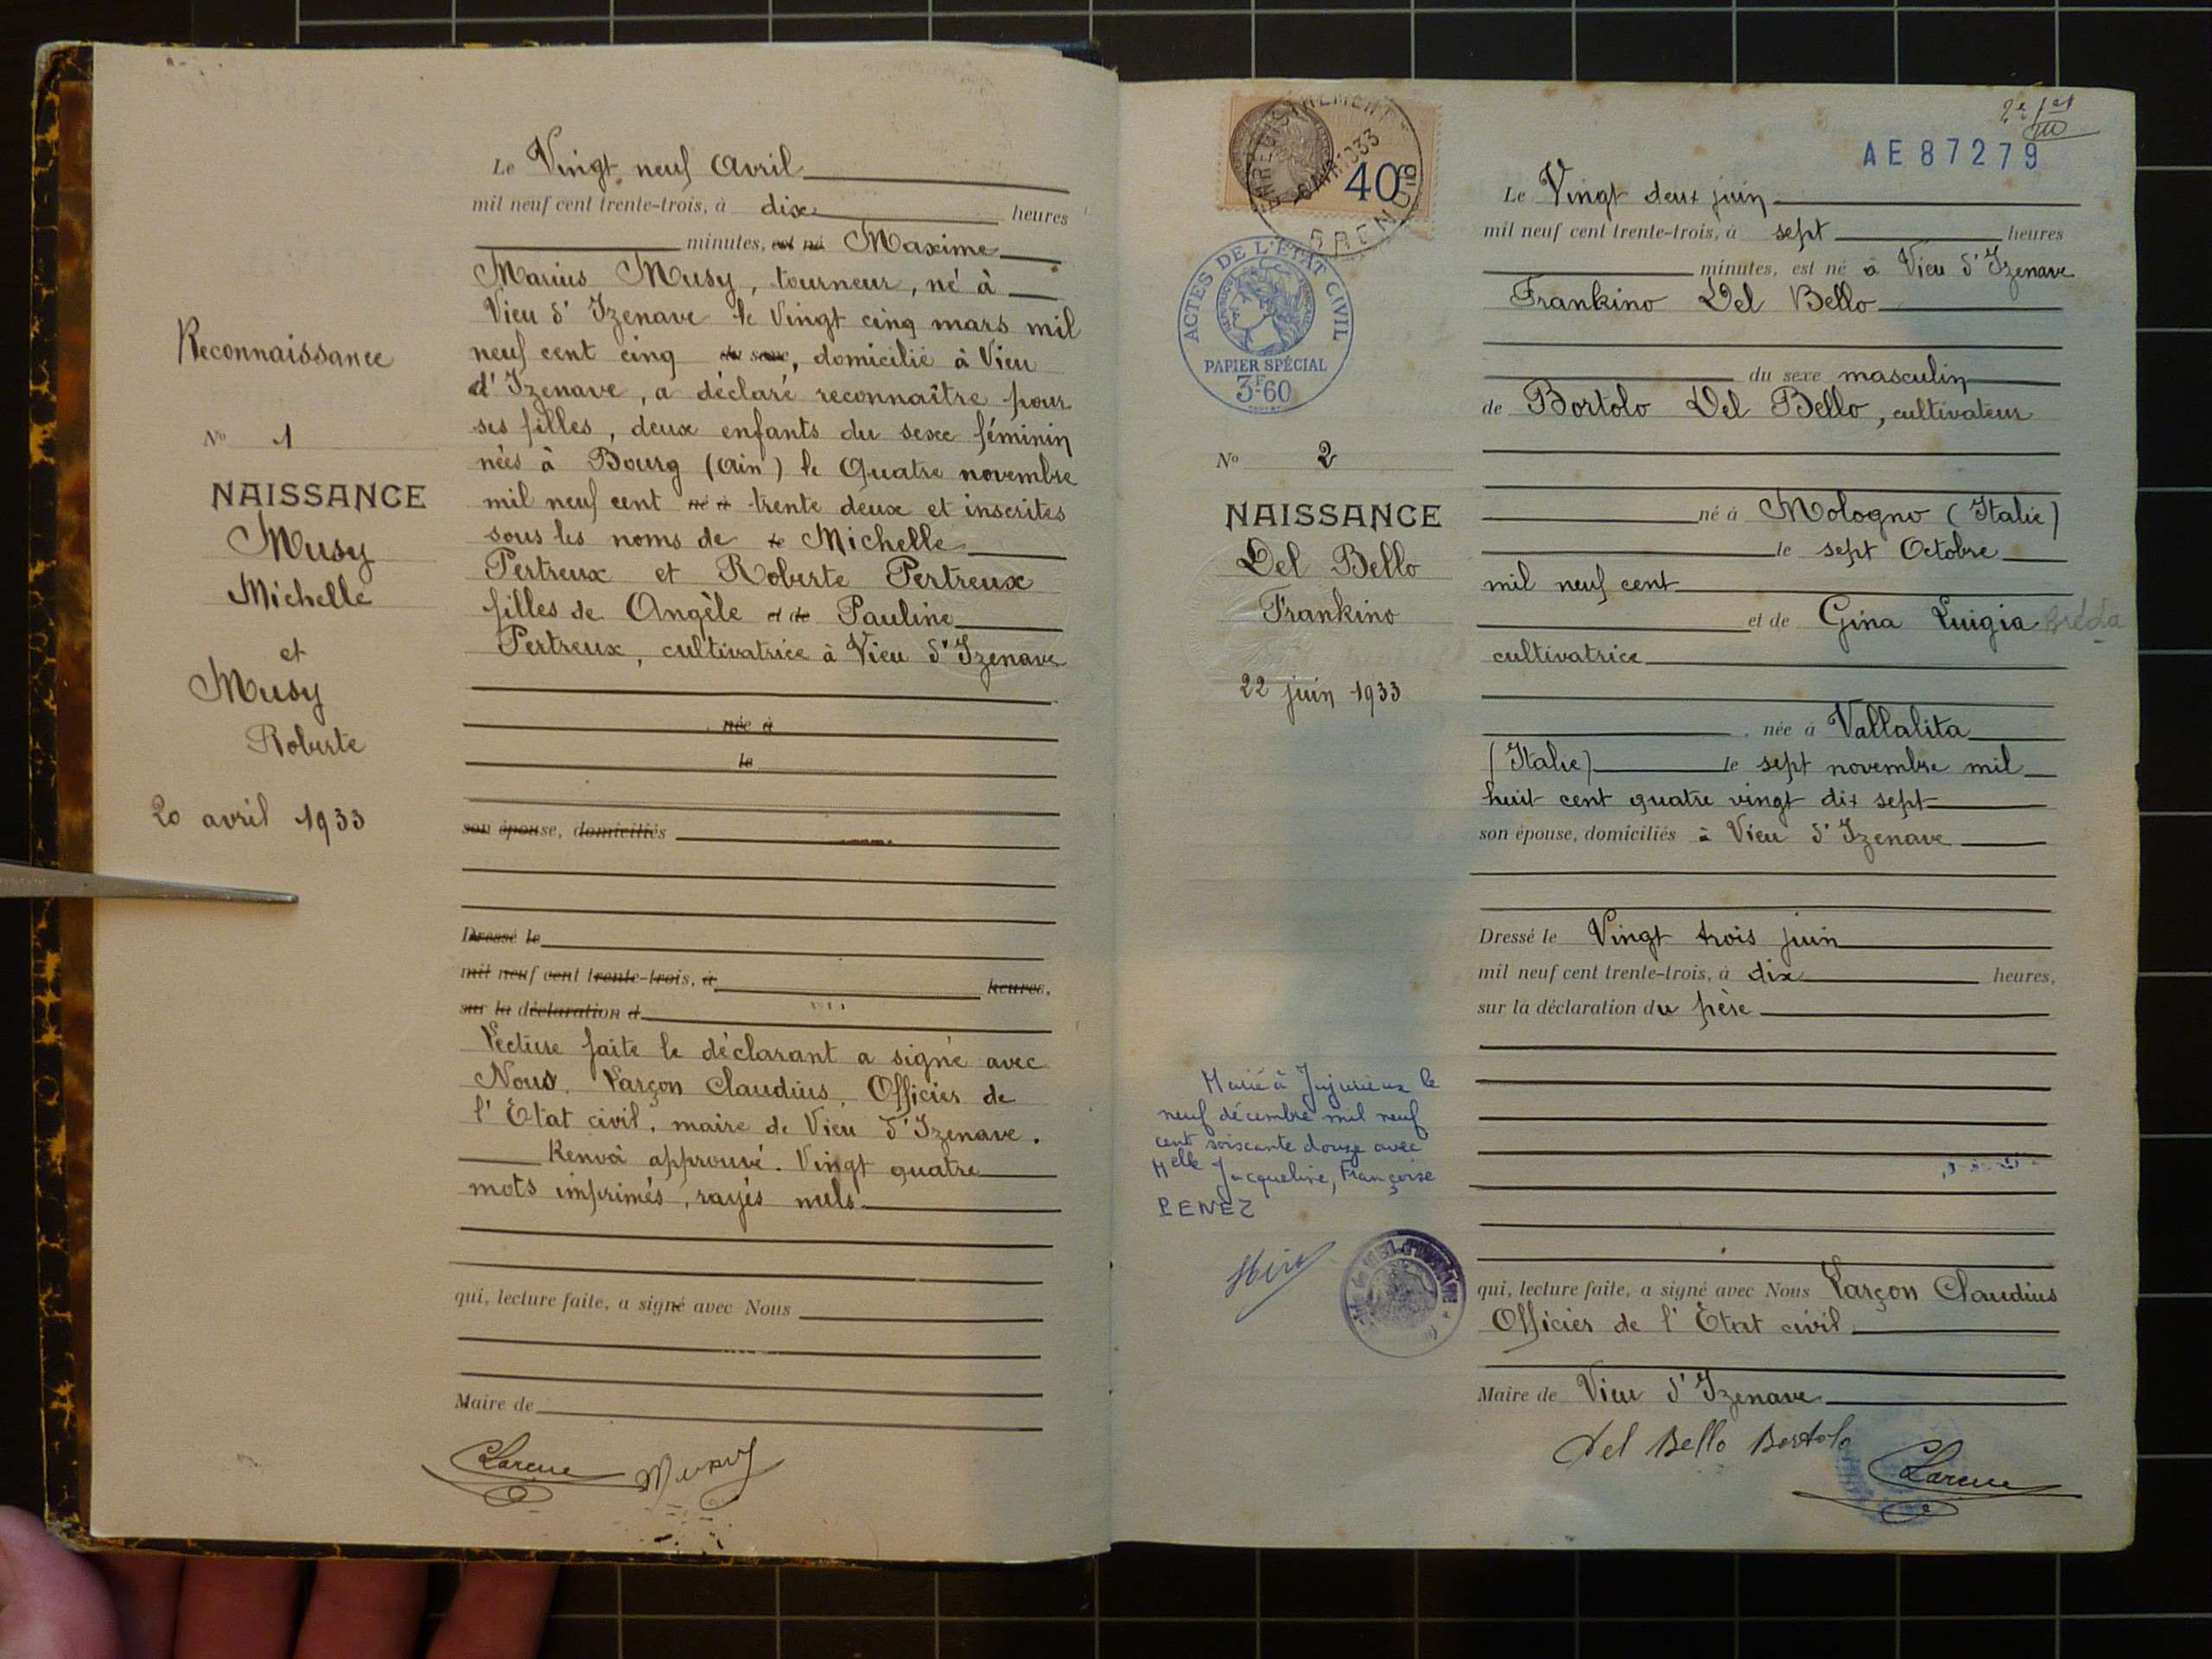 Le Vingt neuf Avril
mil neuf cent trente-trois, à dix heures
minutes, est né Maxime
Marius Musy, tourneur, né à
Vieu d'Izenave le Vingt cinq mars mil
neuf cent cinq du sexe, domicilié à Vieu
d'Izenave, a déclaré reconnaître pour
ses filles, deux enfants du sexe féminin
nées à Bourg (Ain) le Quatre novembre
mil neuf cent né à trente deux et inscrites
sous les noms de le Michelle
Pertreux et Roberte Pertreux
filles de Angèle et de Pauline
Pertreux, cultivatrice à Vieu d'Izenave
née à
le
son épouse, domiciliés
Dressé le
mil neuf cent trente-trois, à heures,
sur la déclaration d
Lecture faite le déclarant a signé avec
Nous. Larçon Claudius, Officier de
l'Etat civil, maire de Vieu d'Izenave.
Renvoi approuvé. Vingt quatre
mots imprimés, rayés nuls
qui, lecture faite, a signé avec Nous
Maire de
Musy
Reconnaissance
No 1
NAISSANCE
Musy
Michelle
et
Musy
Roberte
20 avril 1933
ENREGISTREMENT
1933
40
ACTES DE L'ÉTAT CIVIL
PAPIER SPÉCIAL
3F60
No 2
NAISSANCE
Del Bello
Frankino
22 juin 1933
Marié à Jujurieux le
neuf décembre mil neuf
cent soixante douze avec
Melle Jacqueline, Françoise
PENEZ
AE87279
Le Vingt deux juin
mil neuf cent trente-trois, à sept heures
minutes, est né à Vieu d'Izenave
Frankino Del Bello
du sexe masculin
de Bortolo Del Bello, cultivateur
né à Mologno (Italie)
le sept Octobre
mil neuf cent
et de Gina Luigia Bréda
cultivatrice
née à Vallalita
(Italie) le sept novembre mil
huit cent quatre vingt dix sept
son épouse, domiciliés à Vieu d'Izenave
Dressé le Vingt trois juin
mil neuf cent trente-trois, à dix heures,
sur la déclaration du père
qui, lecture faite, a signé avec Nous Larçon Claudius
Officier de l'Etat civil
Maire de Vieu d'Izenave
Del Bello Bortolo